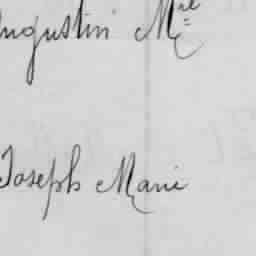 Augustin Mel
Joseph Marie